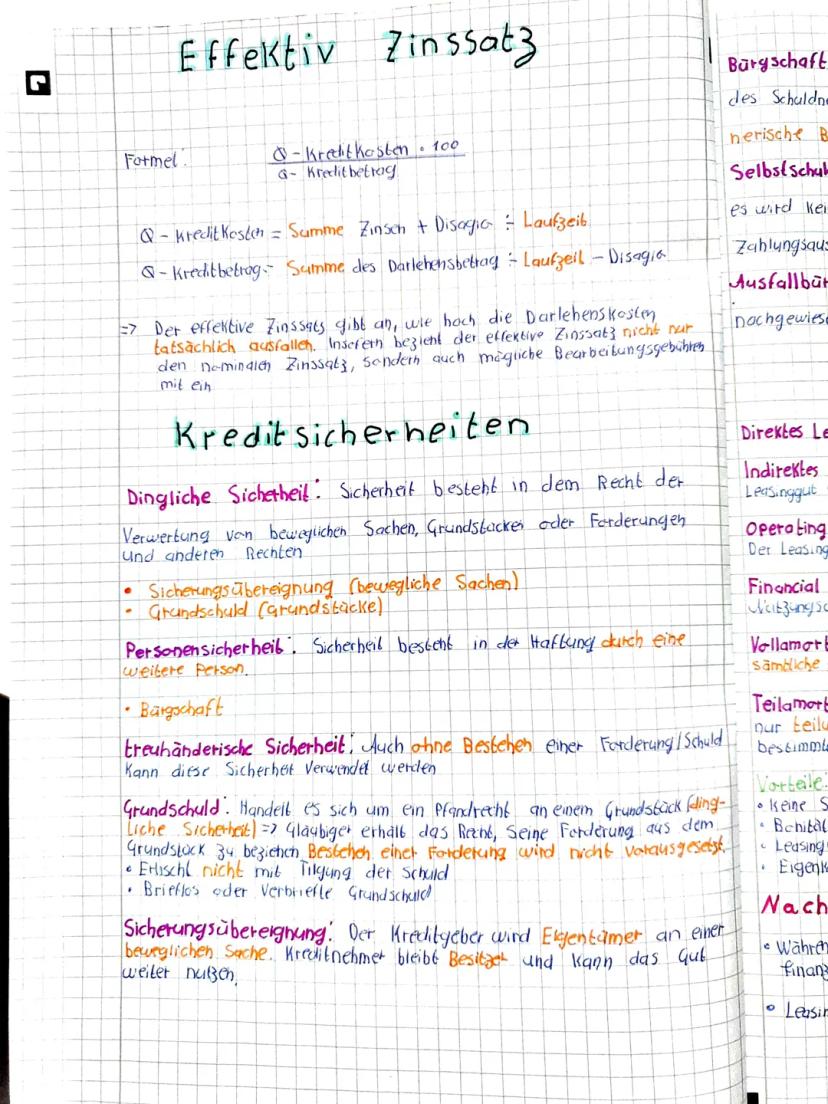 Effektiv Zinssatz
Formel:
Q - Kreditkosten • 100
Q - Kreditbetrag
Q - Kreditkosten = Summe Zinsen + Disagio ÷ Laufzeit
Q - Kreditbetrag = Summe des Darlehensbetrag ÷ Laufzeit - Disagio
=> Der effektive Zinssatz gibt an, wie hoch die Darlehenskosten
tatsächlich ausfallen. Insofern bezieht der effektive Zinssatz nicht nur
den nominalen Zinssatz, sondern auch mögliche Bearbeitungsgebühren
mit ein
Kreditsicherheiten
Dingliche Sicherheit: Sicherheit besteht in dem Recht der
Verwertung von beweglichen Sachen, Grundstücken oder Forderungen
und anderen Rechten
• Sicherungsübereignung (bewegliche Sachen)
• Grundschuld (Grundstücke)
Personensicherheit: Sicherheit besteht in der Haftung durch eine
weitere Person.
• Bürgschaft
treuhänderische Sicherheit: Auch ohne Bestehen einer Forderung/Schuld
kann diese Sicherheit verwendet werden
Grundschuld: Handelt es sich um ein Pfandrecht an einem Grundstück (ding-
liche Sicherheit) => Gläubiger erhält das Recht, seine Forderung aus dem
Grundstück zu beziehen Bestehen einer Forderung wird nicht vorausgesetzt.
• Erlischt nicht mit Tilgung der Schuld
• Brieflos oder Verbriefte Grundschuld
Sicherungsübereignung: Der Kreditgeber wird Eigentümer an einer
beweglichen Sache. Kreditnehmer bleibt Besitzer und kann das Gut
weiter nutzen.
Bürgschaft
des Schuldn
nerische B
Selbstschul
es wird kei
Zahlungsaus
Ausfallbür
nachgewies
Direktes Le
Indirektes
Leasinggut
Operating
Der Leasing
Financial
Nutzungsd
Vollamort
sämtliche
Teilamort
nur teilw
bestimmt
Vorteile:
• Keine S
• Bonität
• Leasing
• Eigenk
Nach
• Währen
finanz
• Leasin